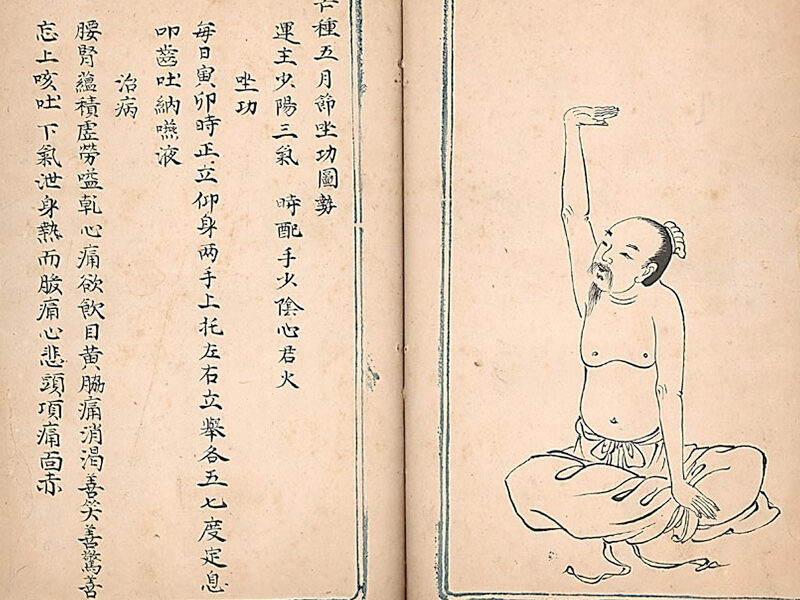 芒種五月節坐功圖勢
運主少陽三氣 時配手少陰心君火
坐功
每日寅卯時正立仰身两手上托左右立舉各五七度定息
叩齒吐納嚥液
治病
腰腎蘊積虛勞嗌乾心痛欲飲目黄脇痛消渴善笑善驚善
忘上咳吐下氣泄身熱而腹痛心悲頭項痛面赤